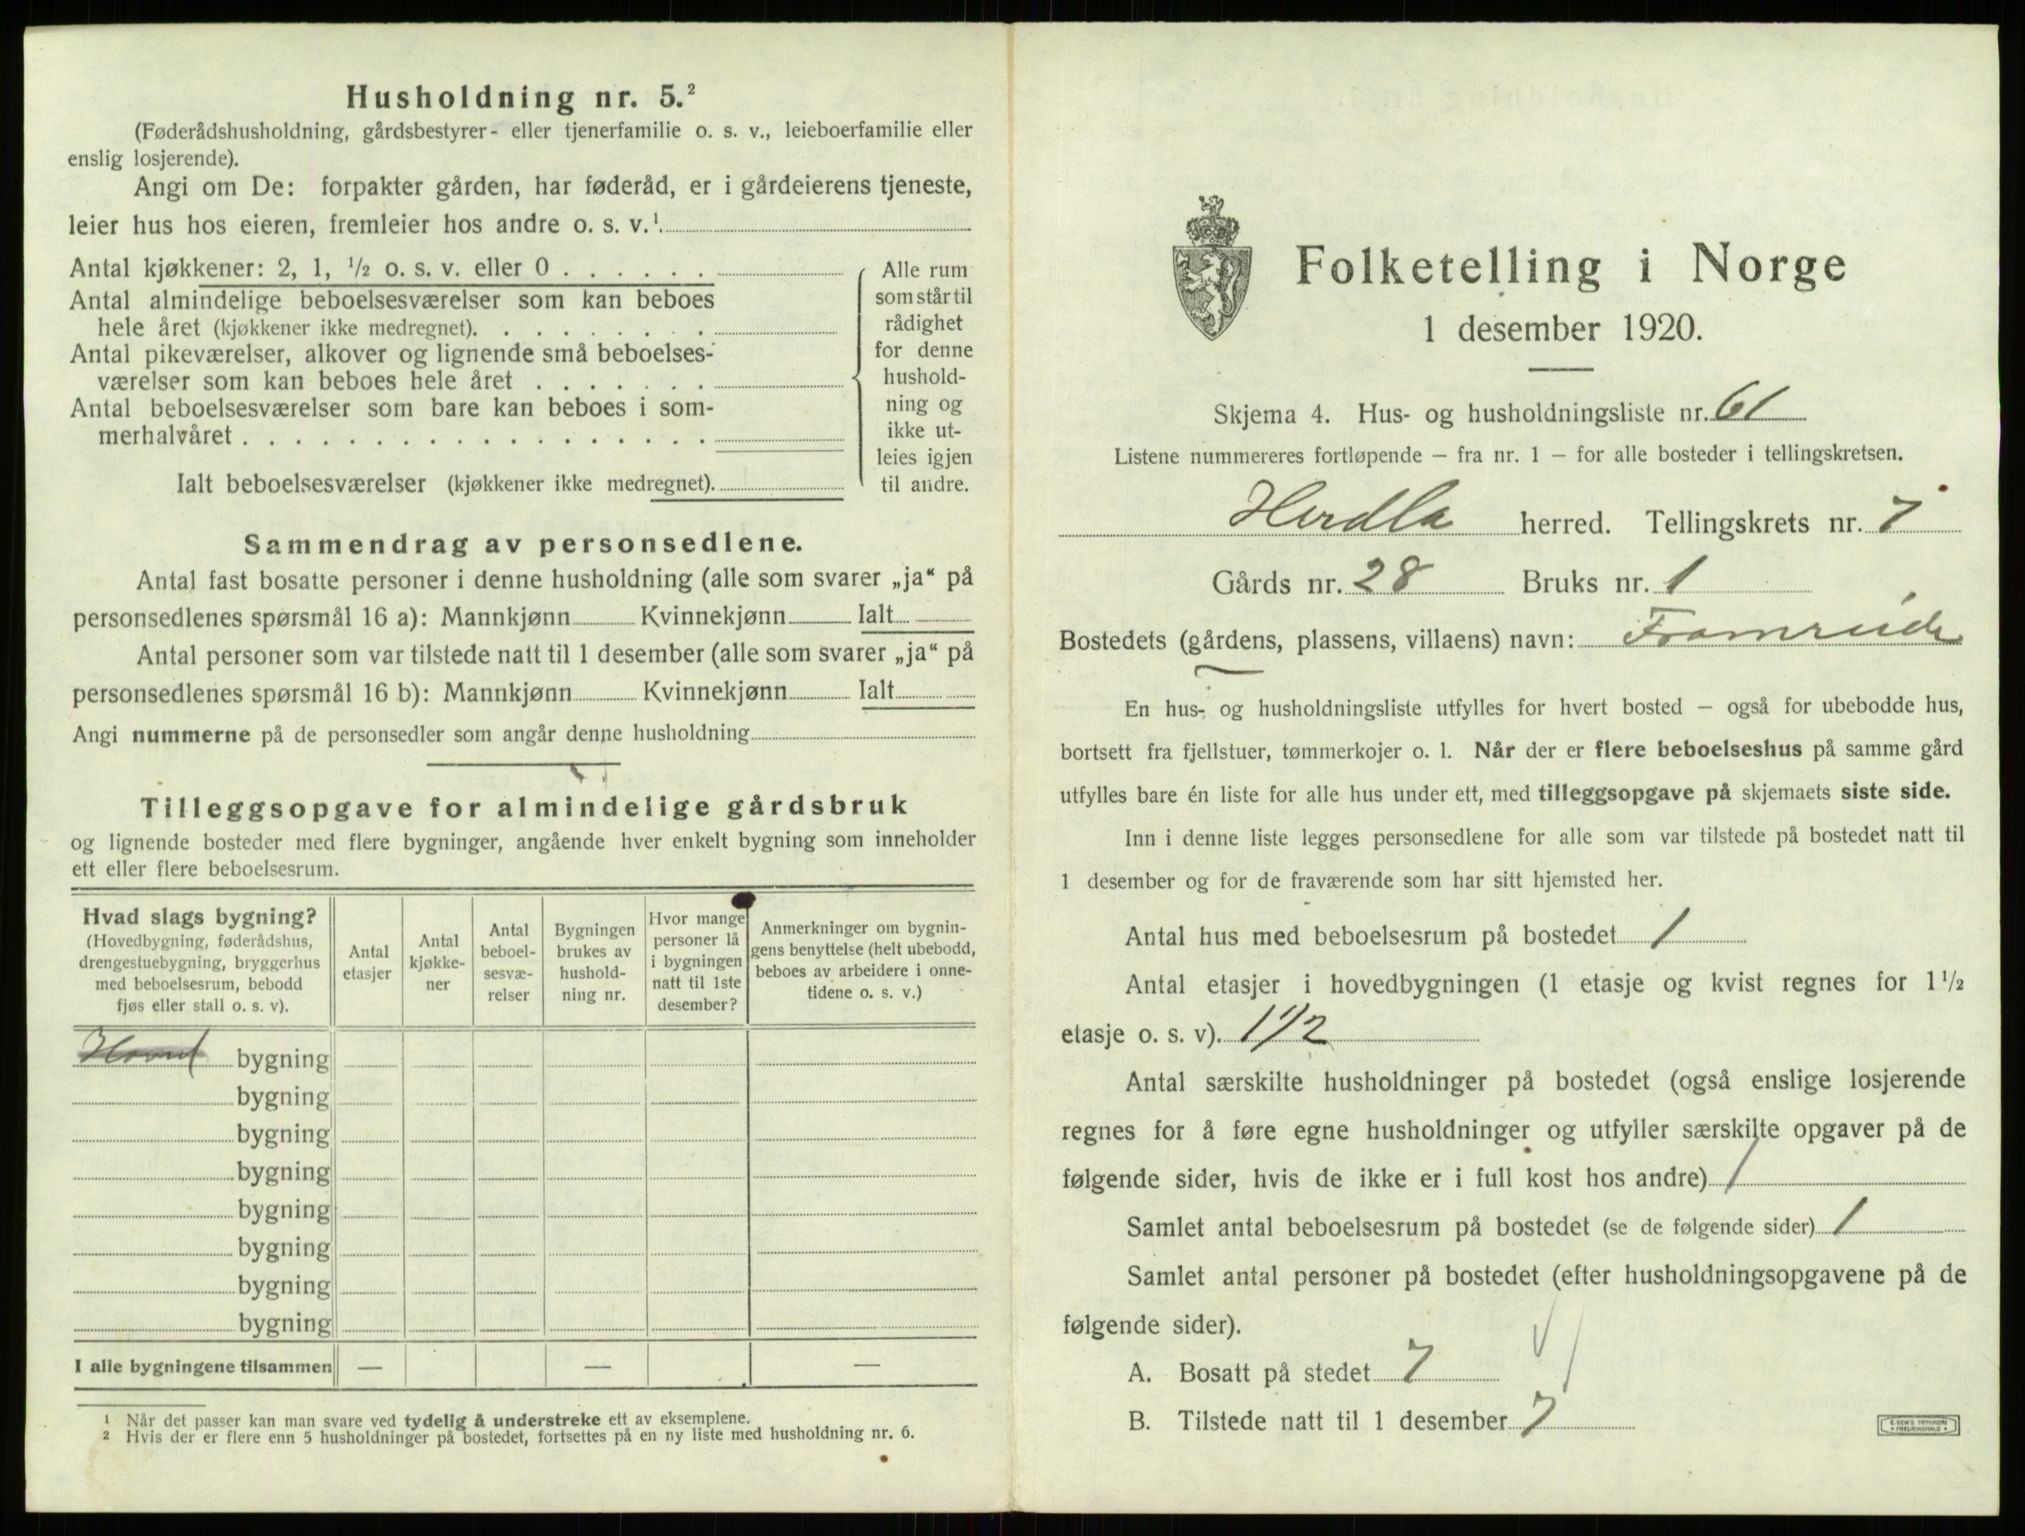 Husholdning nr. 5.²
(Føderådshusholdning, gårdsbestyrer- eller tjenerfamilie o. s. v., leieboerfamilie eller
enslig losjerende).
Angi om De: forpakter gården, har føderåd, er i gårdeierens tjeneste,
leier hus hos eieren, fremleier hos andre o. s. v.¹
Antal kjøkkener: 2, 1, ½ o. s. v. eller 0 . . . . . .
Antal almindelige beboelsesværelser som kan beboes
hele året (kjøkkener ikke medregnet). . . . . . . . .
Antal pikeværelser, alkover og lignende små beboelses-
værelser som kan beboes hele året . . . . . . .
Antal beboelsesværelser som bare kan beboes i som-
merhalvåret . . . . . . . . . . . . . . . . . .
Ialt beboelsesværelser (kjøkkener ikke medregnet).
Alle rum
som står til
rådighet
for denne
hushold-
ning og
ikke ut-
leies igjen
til andre.
Sammendrag av personsedlene.
Antal fast bosatte personer i denne husholdning (alle som svarer „ja“ på
personsedlenes spørsmål 16 a): Mannkjønn Kvinnekjønn Ialt
Antal personer som var tilstede natt til 1 desember (alle som svarer „ja“ på
personsedlenes spørsmål 16 b): Mannkjønn Kvinnekjønn Ialt
Angi nummerne på de personsedler som angår denne husholdning
Tilleggsopgave for almindelige gårdsbruk
og lignende bosteder med flere bygninger, angående hver enkelt bygning som inneholder
ett eller flere beboelsesrum.
Hvad slags bygning?
(Hovedbygning, føderådshus,
drengestuebygning, bryggerhus
med beboelsesrum, bebodd
fjøs eller stall o. s. v).
Antal
etasjer
Antal
kjøkke-
ner
Antal
beboel-
sesvæ-
relser
Bygningen
brukes av
hushold-
ning nr.
Hvor mange
personer lå
i bygningen
natt til 1ste
desember?
Anmerkninger om bygnin-
gens benyttelse (helt ubebodd,
beboes av arbeidere i onne-
tidene o. s. v.)
Hoved bygning
bygning
bygning
bygning
bygning
bygning
bygning
bygning
I alle bygningene tilsammen — — —
¹ Når det passer kan man svare ved tydelig å understreke ett av eksemplene.
² Hvis der er flere enn 5 husholdninger på bostedet, fortsettes på en ny liste med husholdning nr. 6.
Folketelling i Norge
1 desember 1920.
Skjema 4. Hus- og husholdningsliste nr. 61
Listene nummereres fortløpende – fra nr. 1 – for alle bosteder i tellingskretsen.
Herdla herred. Tellingskrets nr. 7
Gårds nr. 28 Bruks nr. 1
Bostedets (gårdens, plassens, villaens) navn:
En hus- og husholdningsliste utfylles for hvert bosted – også for ubebodde hus,
bortsett fra fjellstuer, tømmerkojer o. l. Når der er flere beboelseshus på samme gård
utfylles bare én liste for alle hus under ett, med tilleggsopgave på skjemaets siste side.
Inn i denne liste legges personsedlene for alle som var tilstede på bostedet natt til
1 desember og for de fraværende som har sitt hjemsted her.
Antal hus med beboelsesrum på bostedet 1
Antal etasjer i hovedbygningen (1 etasje og kvist regnes for 1½
etasje o. s. v). 1½
Antal særskilte husholdninger på bostedet (også enslige losjerende
regnes for å føre egne husholdninger og utfyller særskilte opgaver på de
følgende sider, hvis de ikke er i full kost hos andre) 1
Samlet antal beboelsesrum på bostedet (se de følgende sider) 1
Samlet antal personer på bostedet (efter husholdningsopgavene på de
følgende sider).
A. Bosatt på stedet 7
B. Tilstede natt til 1 desember 7
E. SEM'S TRYKKERI
FREDRIKSHALD